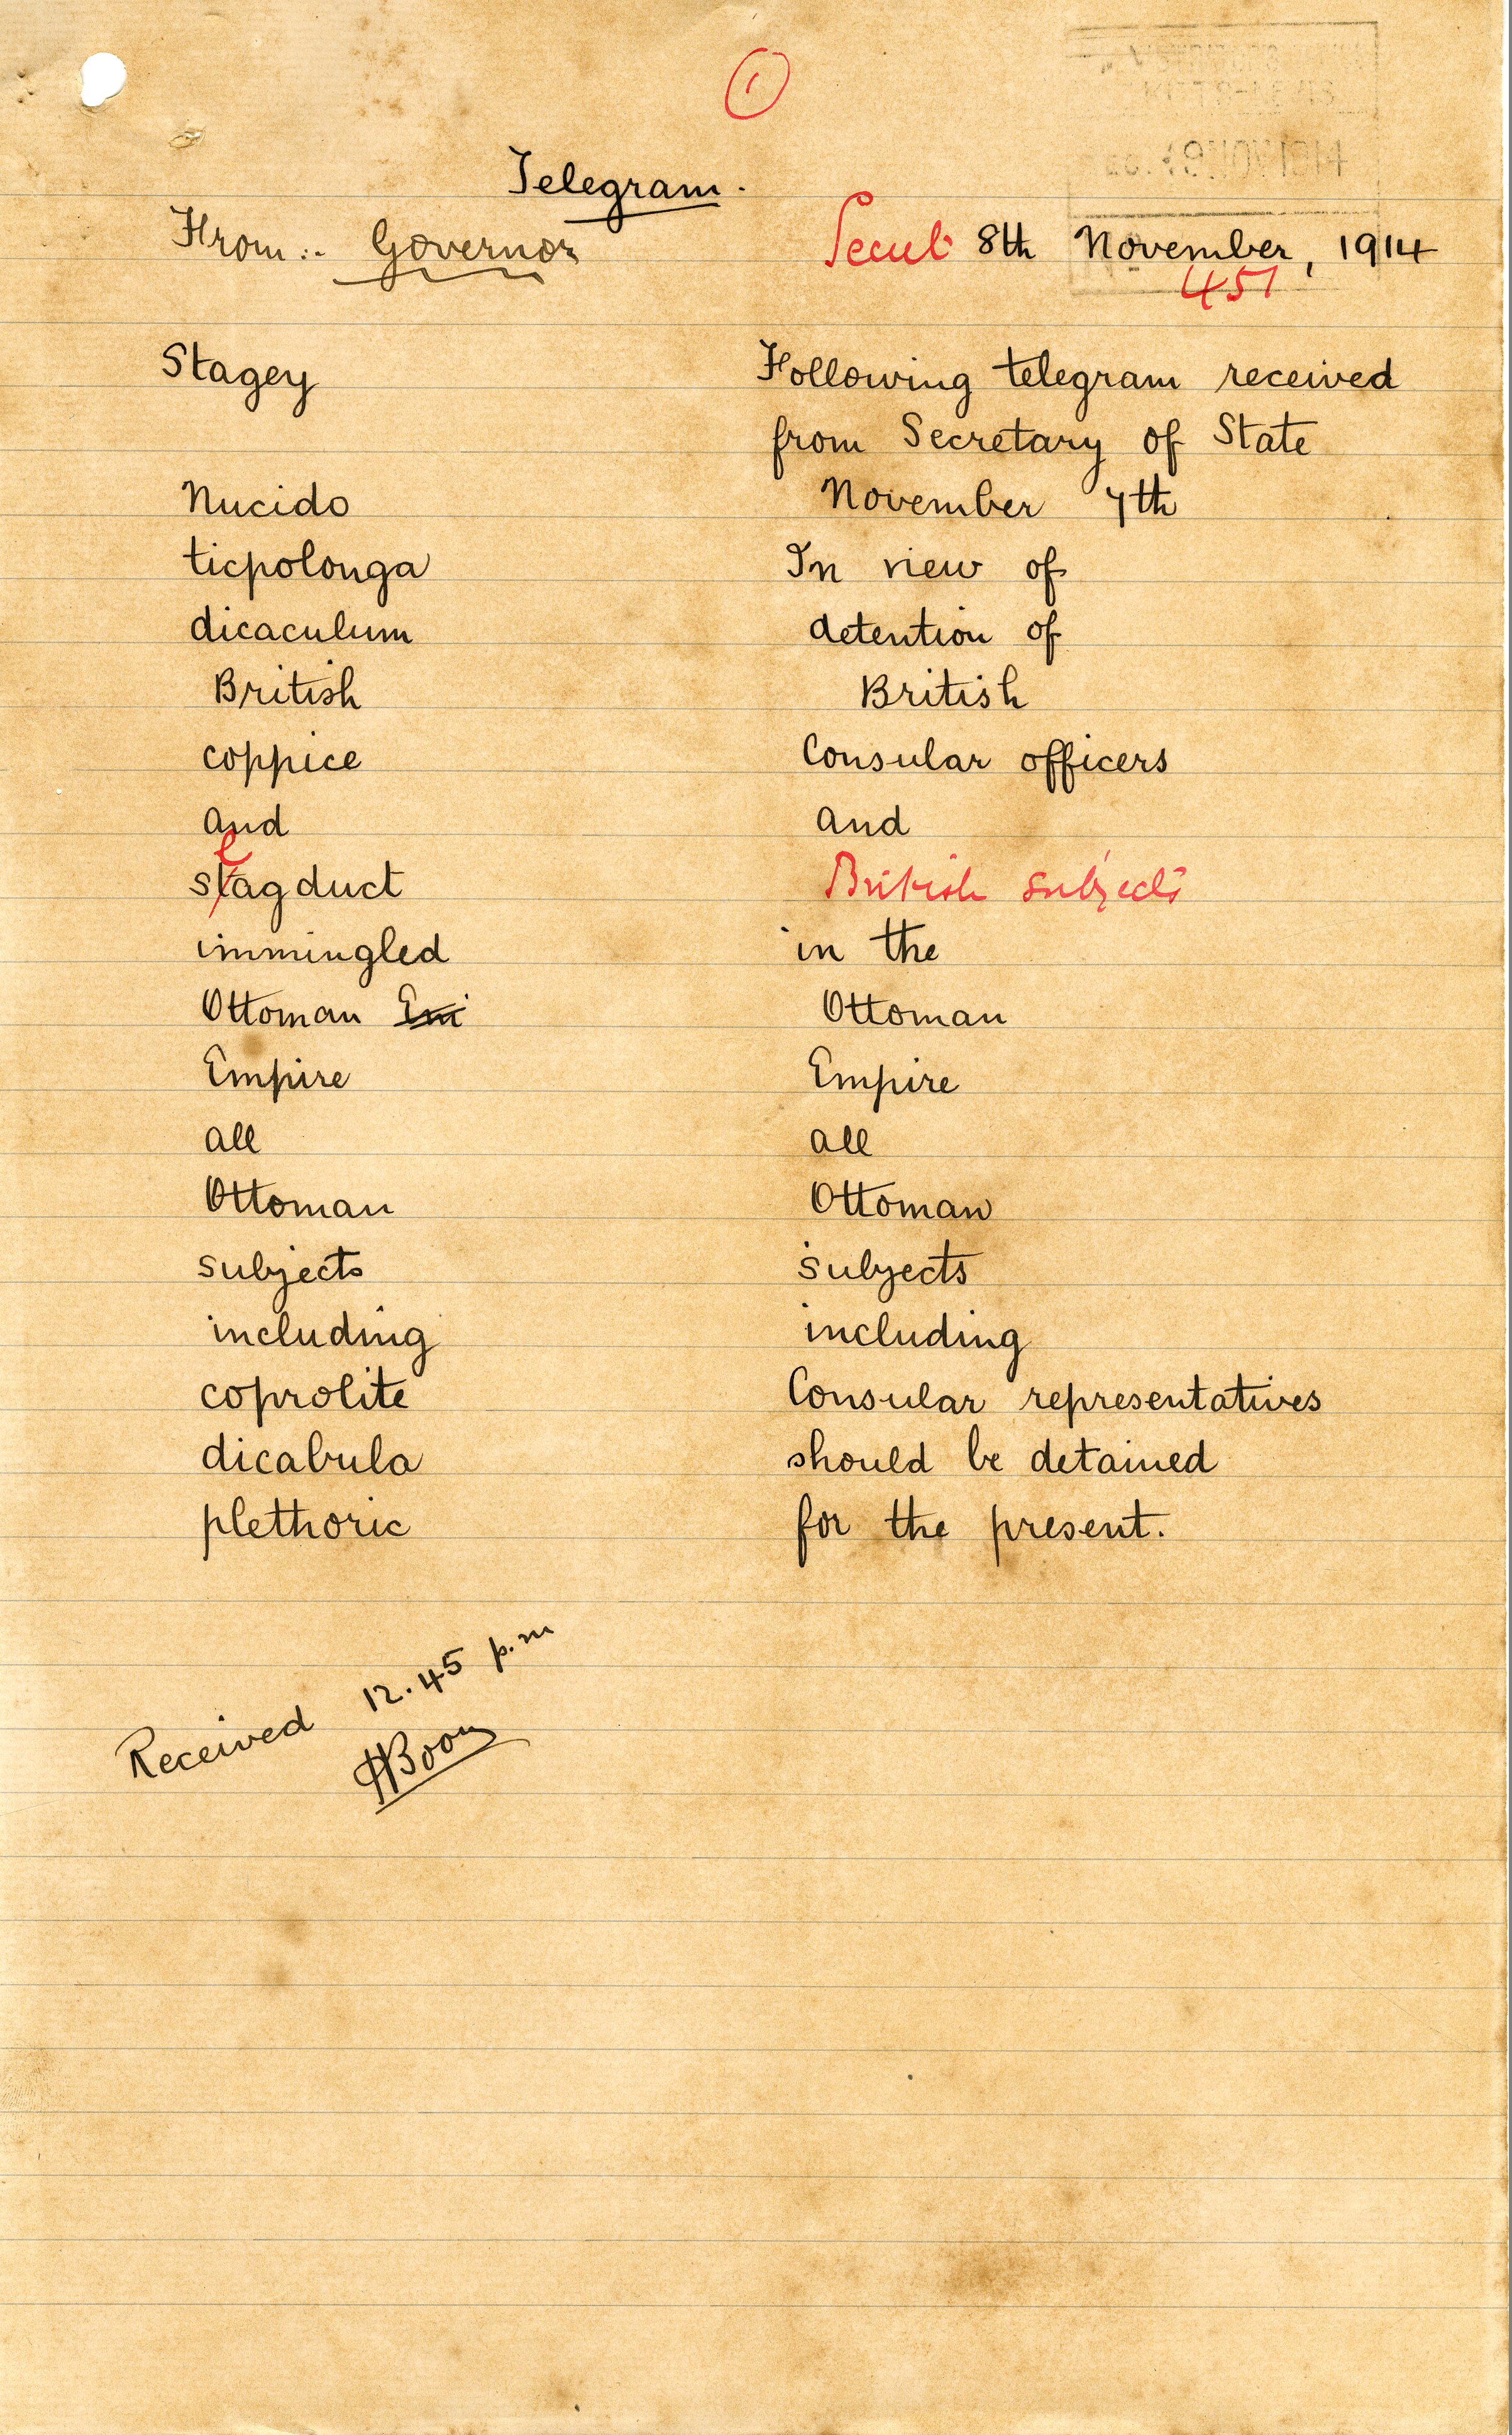 1
Telegram.
From:- Governor Secret 8th November, 1914
451
Stagey Following telegram received
from Secretary of State
Nucido November 7th
ticpolonga In view of
dicaculum detention of
British British
coppice Consular officers
and and
slagduct British subjects
immingled in the
Ottoman Emi Ottoman
Empire Empire
all all
Ottoman Ottoman
subjects subjects
including including
coprolite Consular representatives
dicabula should be detained
plethoric for the present.
Received 12.45 p.m